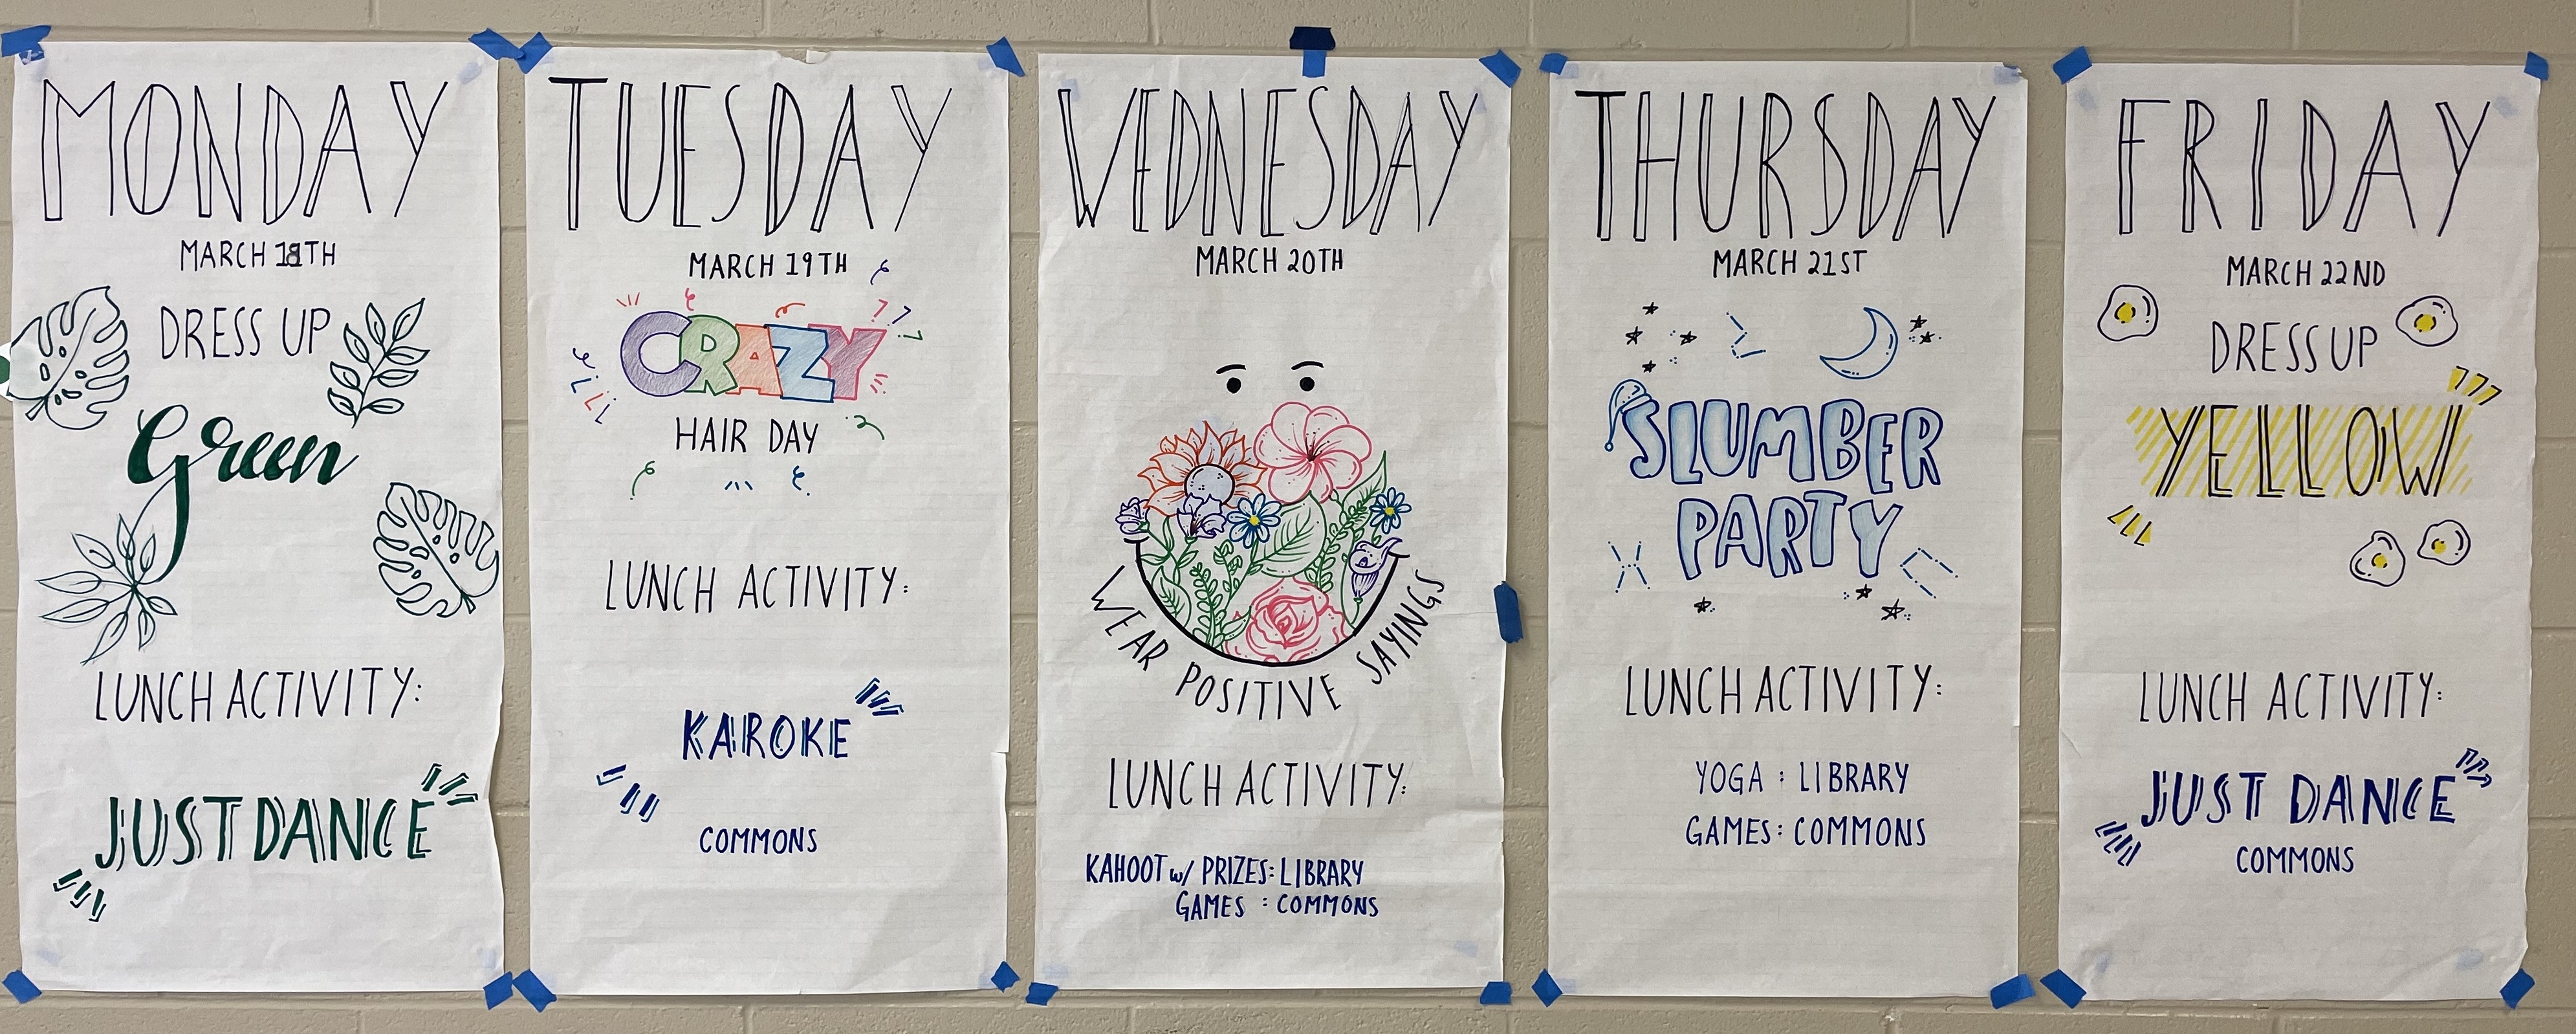 MONDAY
MARCH 18TH
DRESS UP
Green
LUNCH ACTIVITY:
JUST DANCE
TUESDAY
MARCH 19TH
CRAZY
HAIR DAY
LUNCH ACTIVITY:
KAROKE
COMMONS
WEDNESDAY
MARCH 20TH
WEAR POSITIVE SAYINGS
LUNCH ACTIVITY:
KAHOOT w/ PRIZES: LIBRARY
GAMES : COMMONS
THURSDAY
MARCH 21ST
SLUMBER
PARTY
LUNCH ACTIVITY:
YOGA : LIBRARY
GAMES: COMMONS
FRIDAY
MARCH 22ND
DRESS UP
YELLOW
LUNCH ACTIVITY:
JUST DANCE
COMMONS